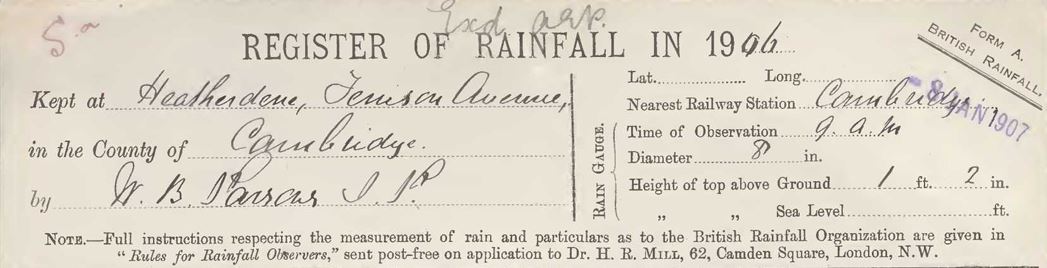 Exd
5
REGISTER OF RAINFALL IN 1906
FORM A.
BRITISH RAINFALL.
Kept at Heatherdene, Tenison Avenue,
in the County of Cambridge.
by W. B. Parsons
Lat. Long.
Nearest Railway Station Cambridge
-8 JAN 1907
RAIN GAUGE.
Time of Observation 9. a. m
Diameter 8 in.
Height of top above Ground 1 ft. 2 in.
„ „ Sea Level ft.
NOTE.—Full instructions respecting the measurement of rain and particulars as to the British Rainfall Organization are given in
“Rules for Rainfall Observers,” sent post-free on application to Dr. H. R. MILL, 62, Camden Square, London, N.W.